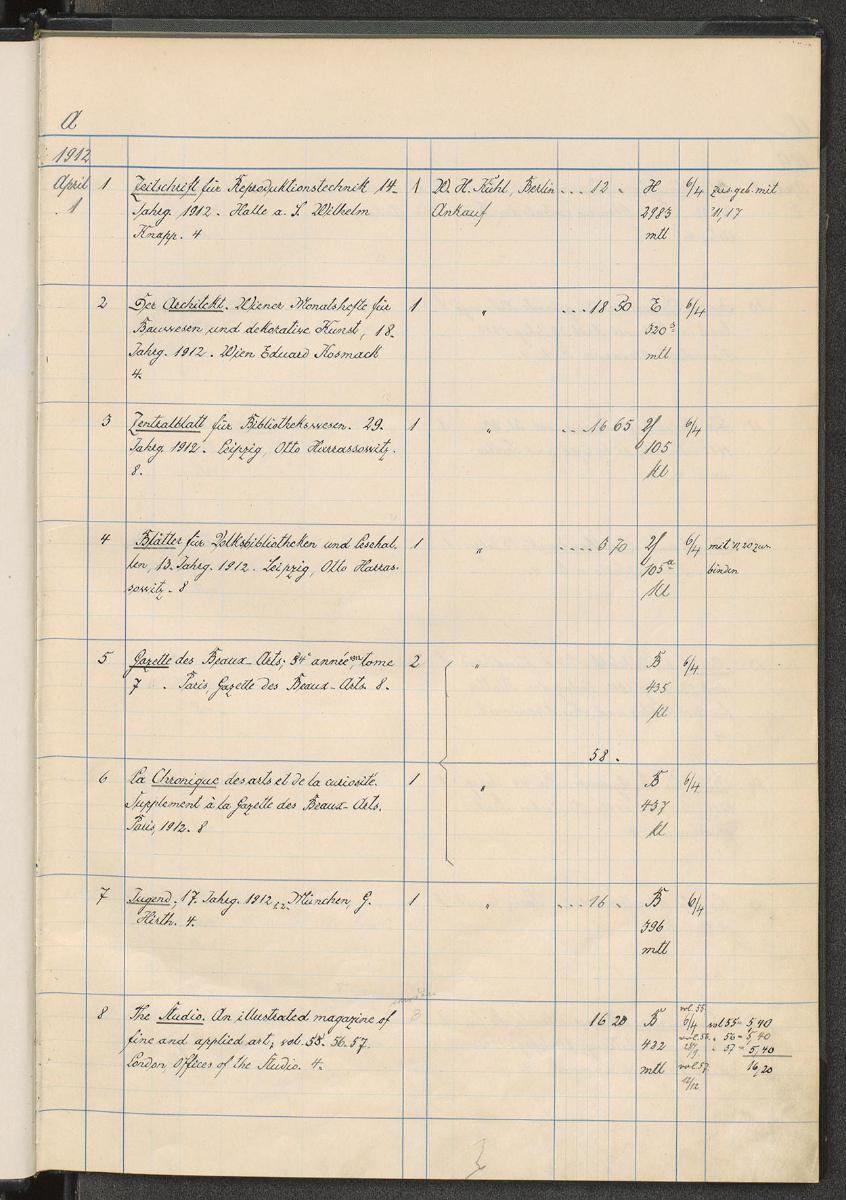 a
1912
April 1 Zeitschrift für Reproduktionstechnik 14- 1 W. H. Kühl, Berlin ... 12 " H 6/4 zus. geb. mit
. 1 Jahrg. 1912. Halle a. S. Wilhelm Ankauf 2983 '11, 17
Knapp. 4 mtl
2 Der Architekt. Wiener Monatshefte für 1 " ... 18 50 E 6/4
Bauwesen und dekorative Kunst, 18- 320
Jahrg. 1912. Wien Eduard Kosmack mtl
4.
3 Zentralblatt für Bibliothekswesen. 29. 1 " ... 16 65 2f 6/4
Jahrg. 1912. Leipzig, Otto Harrassowitz. 105
8. kl
4 Blätter für Volksbibliotheken und Lesehal- 1 " .... 3 70 2f 6/4 mit '11, 20 zus.
len, 13. Jahrg. 1912. Leipzig, Otto Harras- 105a binden
sowitz. 8 kl
5 Gazette des Beaux-Arts; 54e année, tome 2 " B 6/4
7 . Paris, Gazette des Beaux-Arts. 8. 435
kl
58 .
6 La Chronique des arts et de la curiosité. 1 " B 6/4
Supplement à la Gazette des Beaux-Arts. 437
Paris, 1912. 8 kl
7 Jugend, 17. Jahrg. 1912 München, G. 1 " ... 16 " B 6/4
Hirth. 4. 396
mtl
8 The Studio. An illustrated magazine of 3 16 20 B vol. 55. 6/4 vol 55 = 5,40
fine and applied art; vol. 55. 56. 57. 432 vol. 56. " 56 = 5,40
London, Offices of the Studio. 4. mtl vol. 57. " 57 = 5,40
12/12 16,20